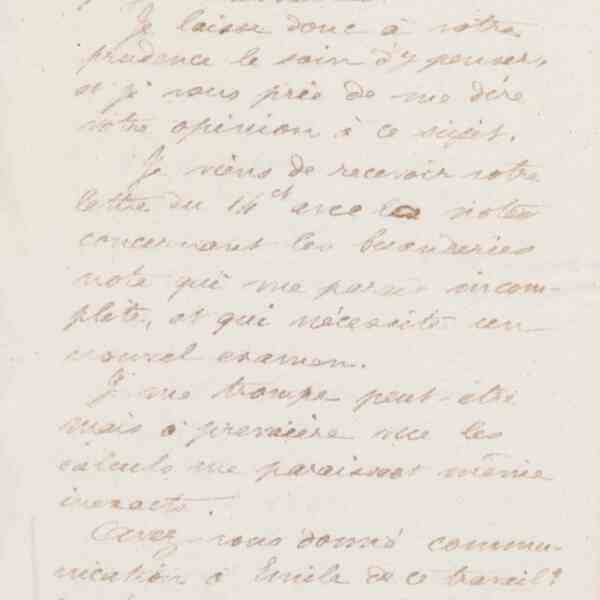 Je laisse donc à votre
prudence le soin d'y penser,
et je vous prie de me dire
votre opinion à ce sujet.
Je viens de recevoir votre
lettre du 14 ct avec la note
concernant les buanderies
note qui me parait incom-
plète, et qui nécessite un
nouvel examen.
Je me trompe peut-être
mais à première vue les
calculs me paraissent même
inexacts.
Avez-vous donné commu-
nication à Emile de ce travail?